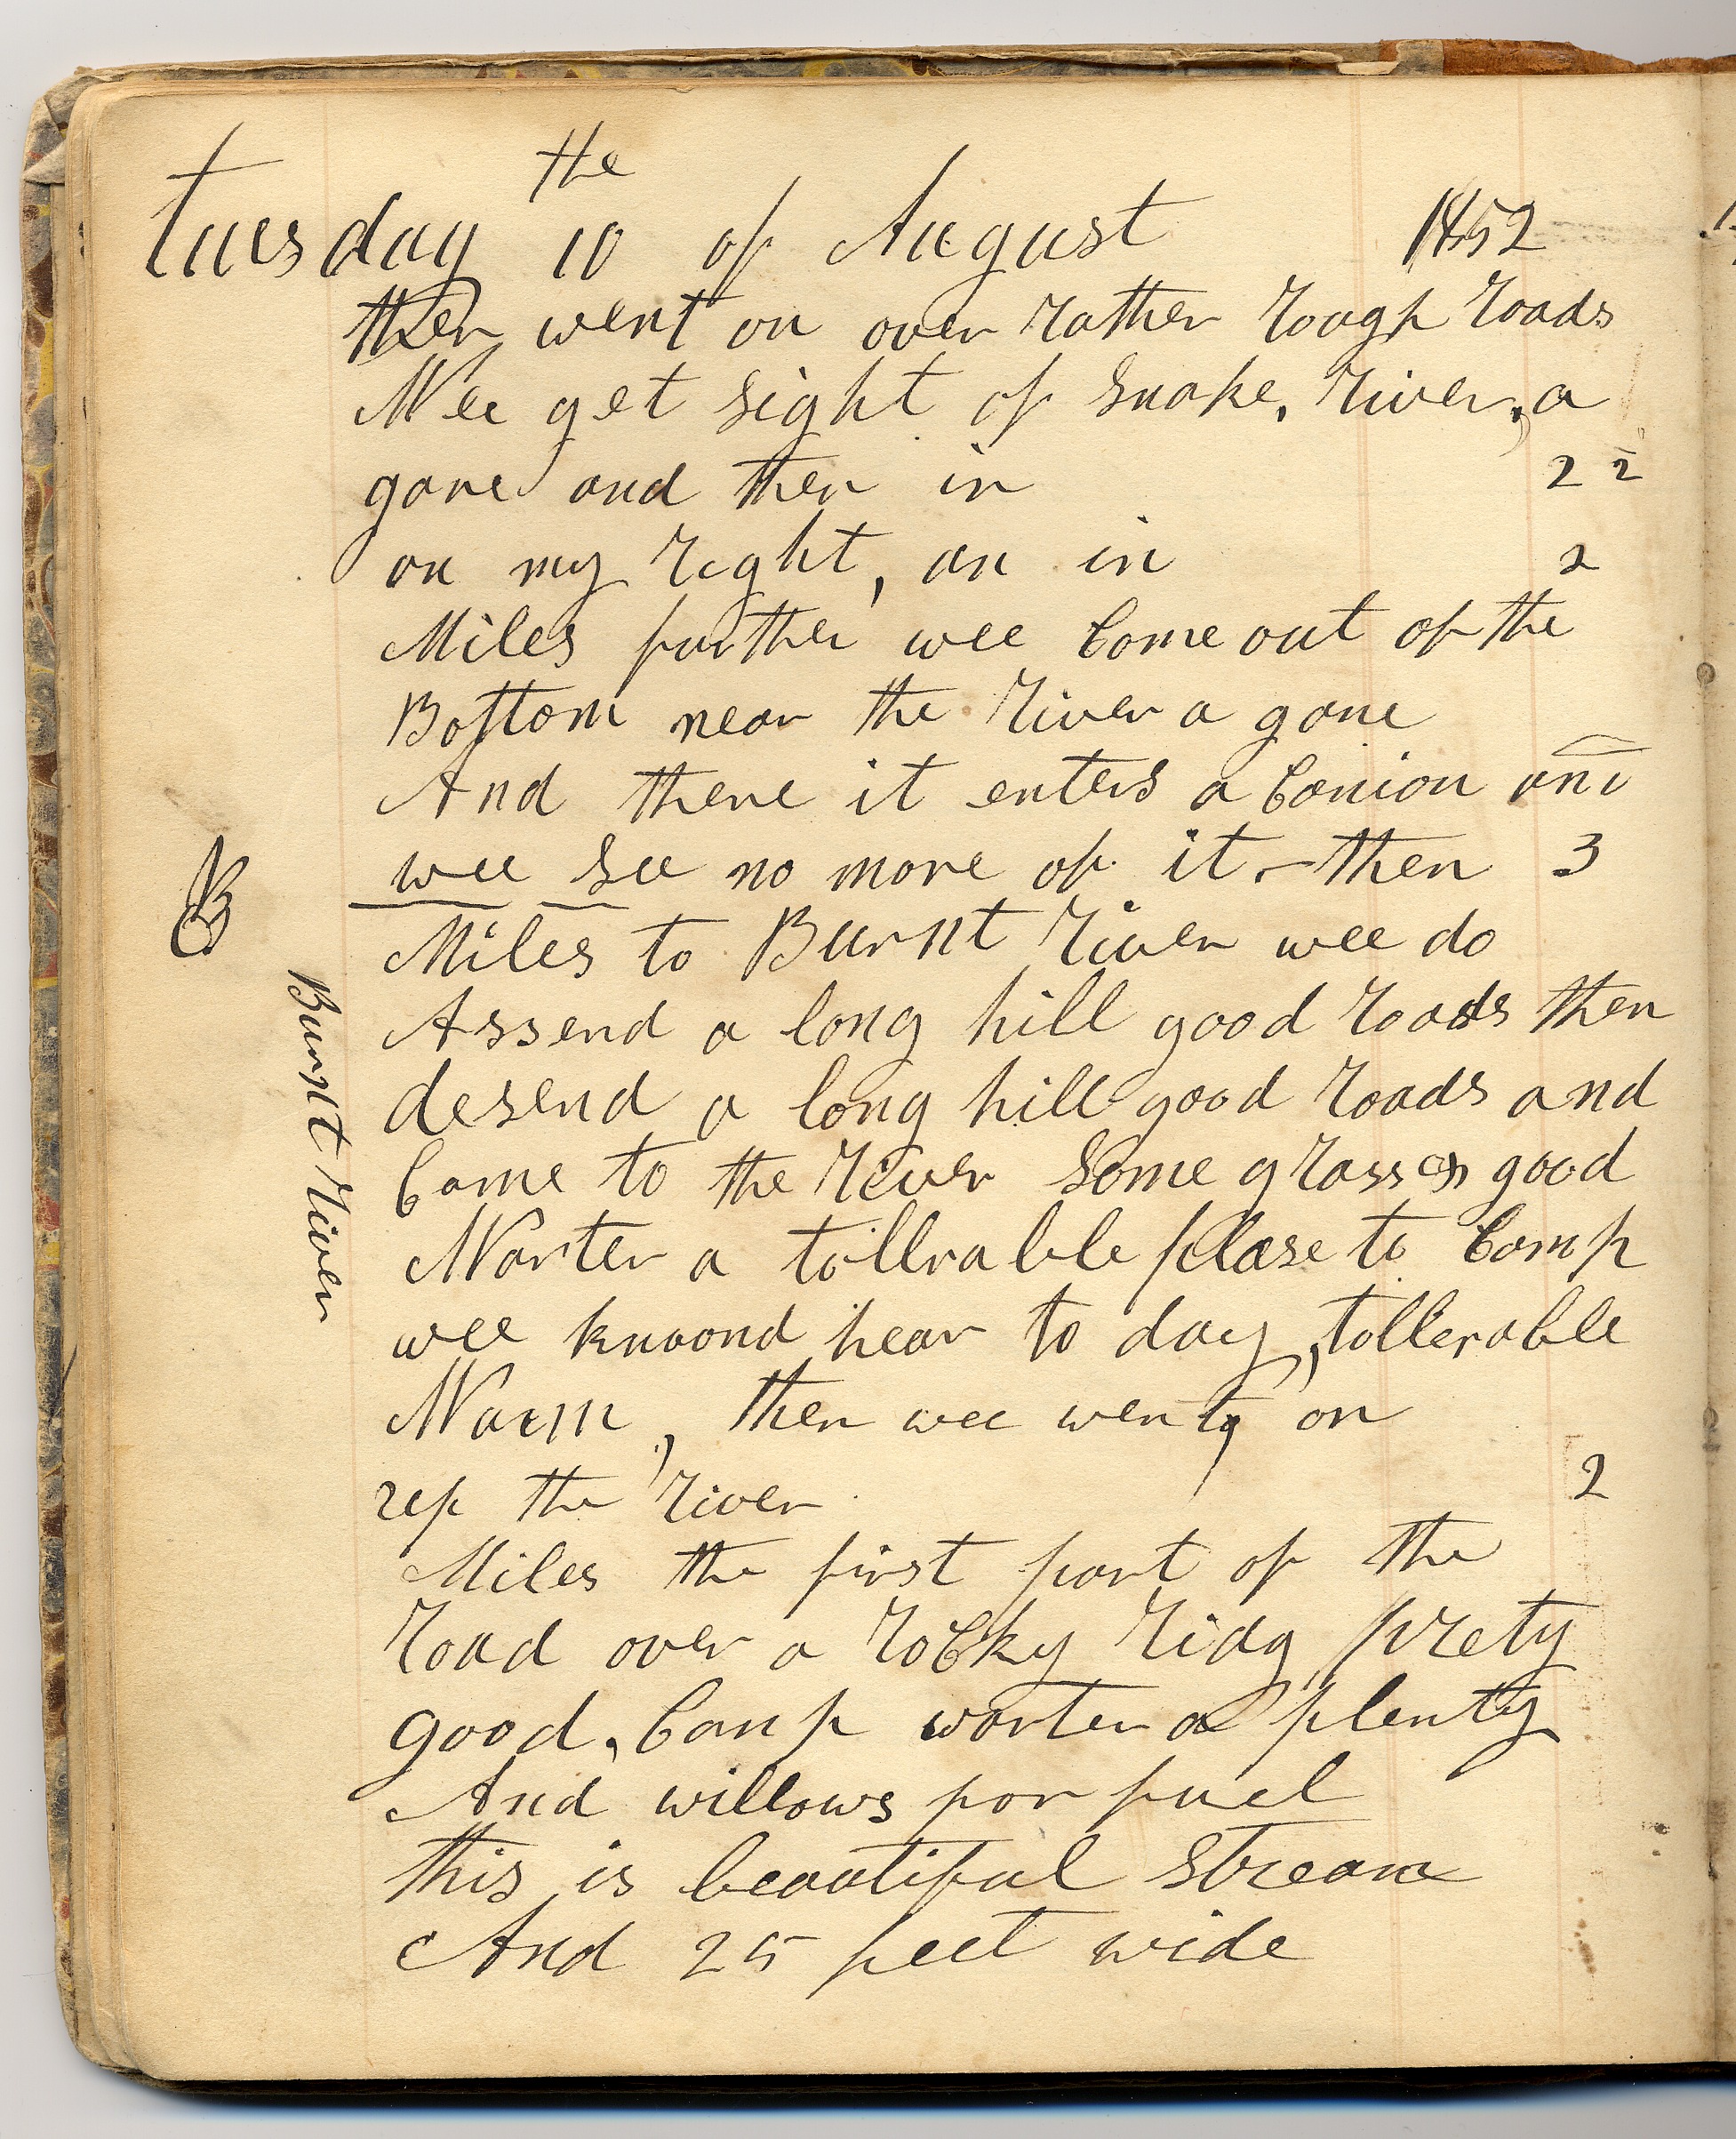 the
tuesday 10 of August 1852
then went on over rather rough roads
Wee get sight of Snake, river, a
gane and then in 2 1/2
on my right, an in 2
Miles further wee Come out of the
Bottom near the river a gane
And there it enters a Canion and
wee see no more of it - then 3
Miles to Burnt river wee do
Assend a long hill good roads then
desend a long hill good roads and
Came to the river Some grass good
Warter a tollrable plase to Camp
wee knoond hear to day, tollerable
Warm, then wee went on
up the river 2
Miles the first part of the
road over a rocky ridg, prety
good, Camp warter a plenty
And willows for fuel
this is beautiful stream
And 25 feet wide
B
Burnt river